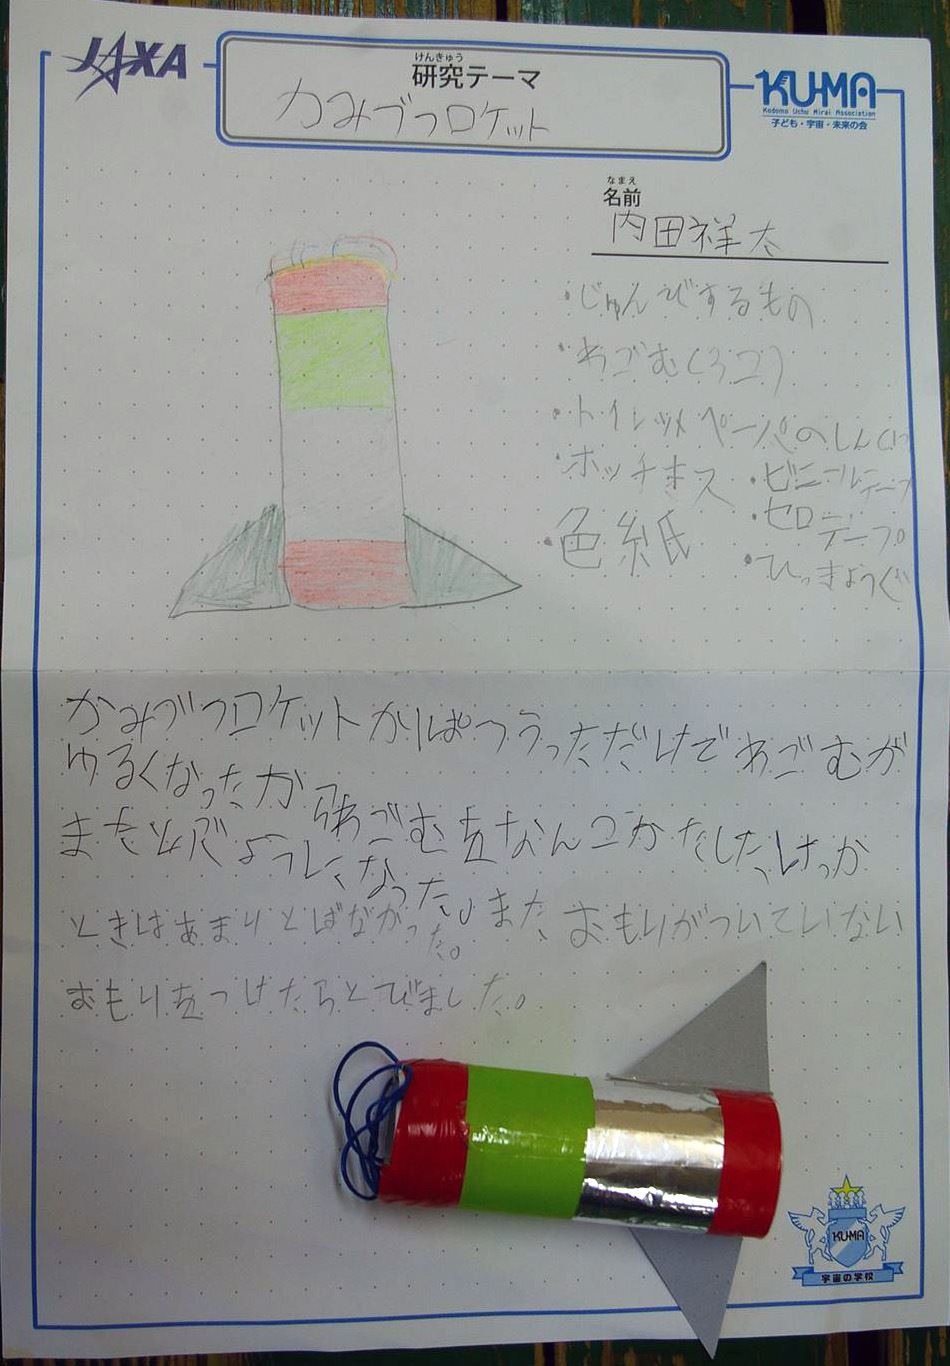 JAXA
けんきゅう
研究テーマ
かみづつロケット
KU-MA
Kodomo Uchu Mirai Association
子ども・宇宙・未来の会
なまえ
名前
内田祥太
・じゅんびするもの
・わごむ(3コ)
・トイレットペーパーのしん
・ホッチキス ・ビニールテープ
・色紙 ・セロテープ
・ひっきようぐ
かみづつロケットかりぱつうっただけでわごむが
ゆるくなったが
わごむをなんこかたした、けっか
しくなった。
ときはあまりとばなかった。また おもりがついていない
おもりをつけたらとびました。
KU-MA
宇宙の学校